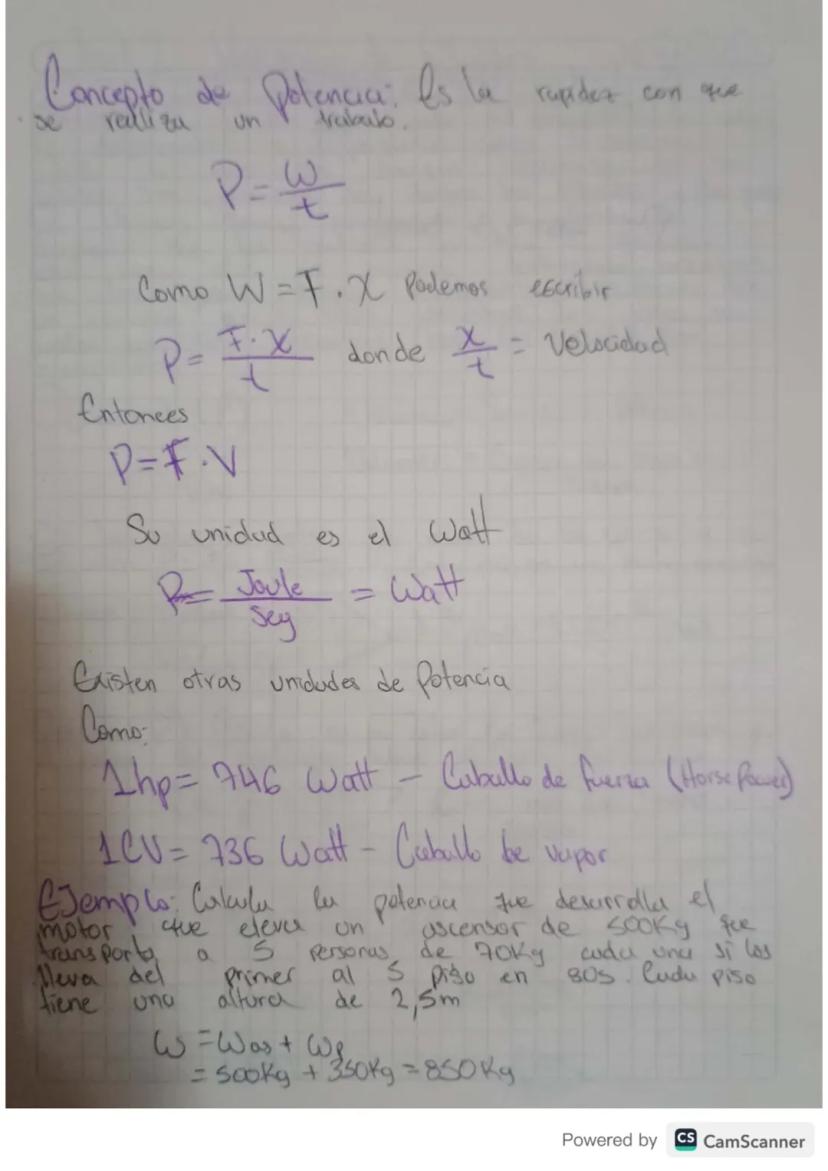 Concepto de Potencia: Es la rapidez con que
se realiza un trabalo.
P = W/t
Como W = F . X Podemos escribir
P = F · X / t donde x/t = Velocidad
Entonces
P = F . V
Su unidad es el Watt
P = Joule/Seg = Watt
Existen otras unidades de Potencia
Como:
1hp = 746 Watt - Caballo de fuerza (Horse Power)
1CV = 736 Watt - Caballo be vapor
Ejemplo: Calcula la potencia que desarrolla el
motor que eleva un ascensor de 500Kg que
transporta a 5 Personas, de 70Kg cada una si los
lleva del primer al 5 piso en 80s. Cada piso
tiene una altura de 2,5m
W = Was + Wp
= 500Kg + 350Kg = 850Kg
Powered by CS CamScanner